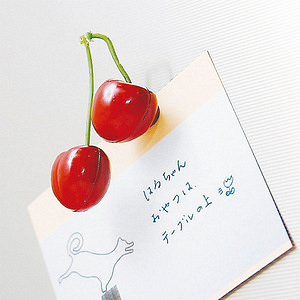 はるちゃん
おやつは、
テーブルの上